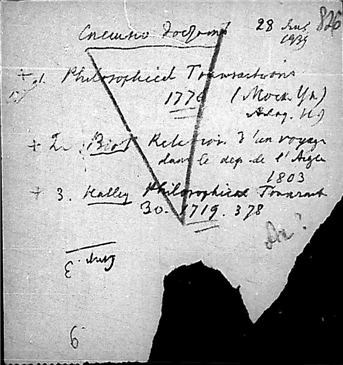 Спешно достать 28 Aug 826
1939
+ 1. Philosophical Transactions
1776 (Моск. Ун)
+ 2. Biot Relation d'un voyage
dans le dep. de l'Aigle
1803
+ 3. Halley Philosophical Transact
30. 1719. 378
Да?
6